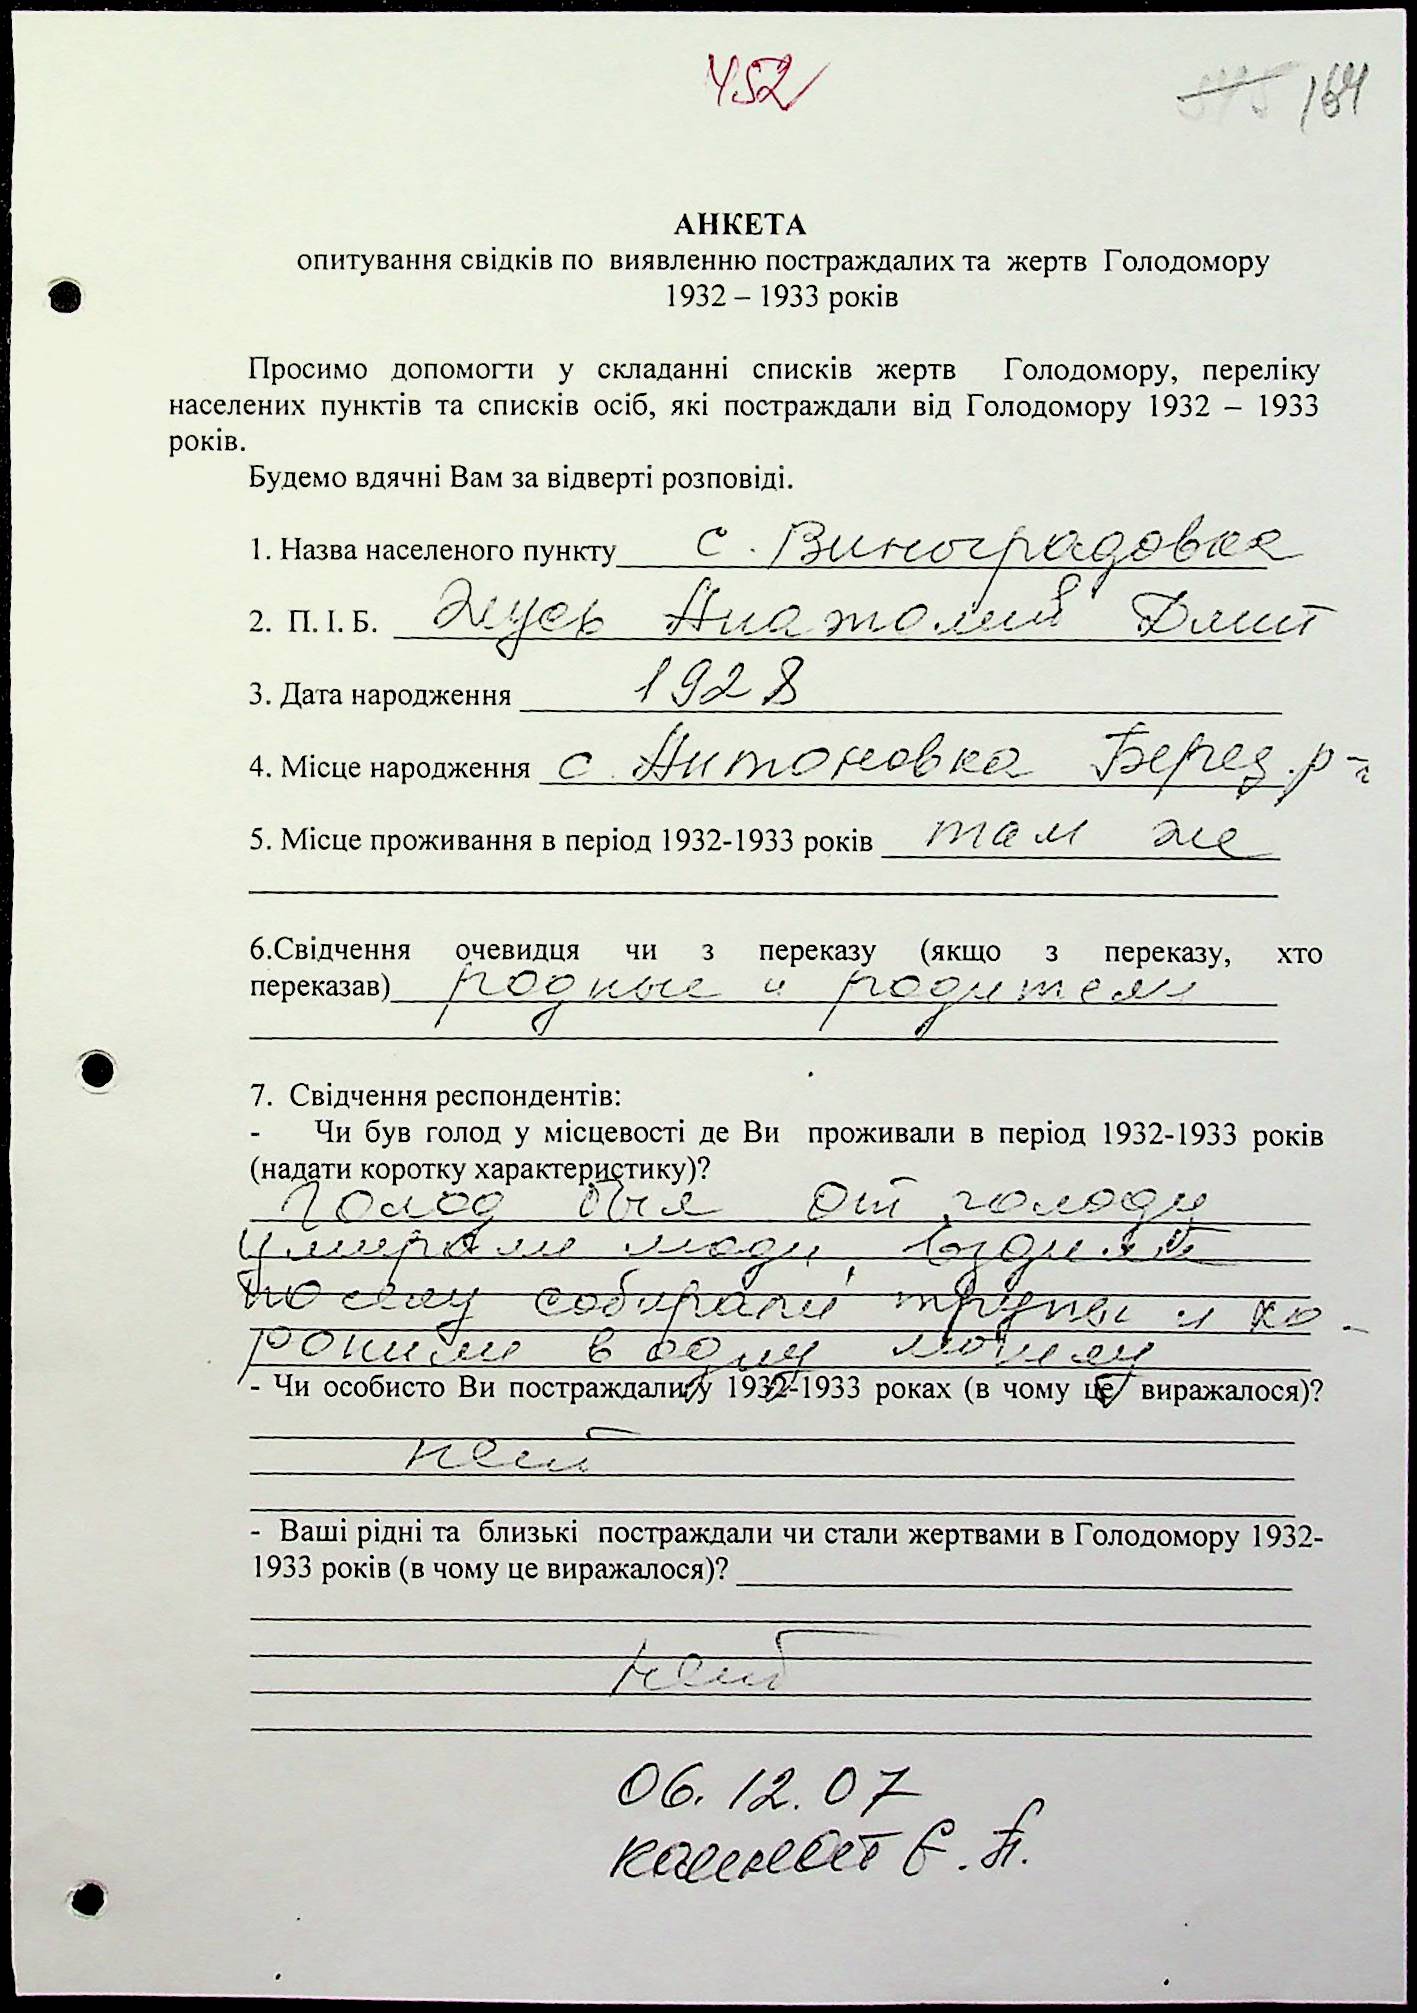 452
164
АНКЕТА
опитування свідків по виявленню постраждалих та жертв Голодомору
1932 – 1933 років
Просимо допомогти у складанні списків жертв Голодомору, переліку
населених пунктів та списків осіб, які постраждали від Голодомору 1932 – 1933
років.
Будемо вдячні Вам за відверті розповіді.
1. Назва населеного пункту с. Виноградовка
2. П. І. Б. Анатолий Дмит
3. Дата народження 1928
4. Місце народження с. Антоновка Берез. р-
5. Місце проживання в період 1932-1933 років там же
6.Свідчення очевидця чи з переказу (якщо з переказу, хто
переказав) родные и родители
7. Свідчення респондентів:
- Чи був голод у місцевості де Ви проживали в період 1932-1933 років
(надати коротку характеристику)?
Голод был от голоду
умирали люди, ездили
по селу собирали трупы и хо-
ронили в одну могилу
- Чи особисто Ви постраждали у 1932-1933 роках (в чому це виражалося)?
нет
- Ваші рідні та близькі постраждали чи стали жертвами в Голодомору 1932-
1933 років (в чому це виражалося)?
нет
06.12.07
Е. П.